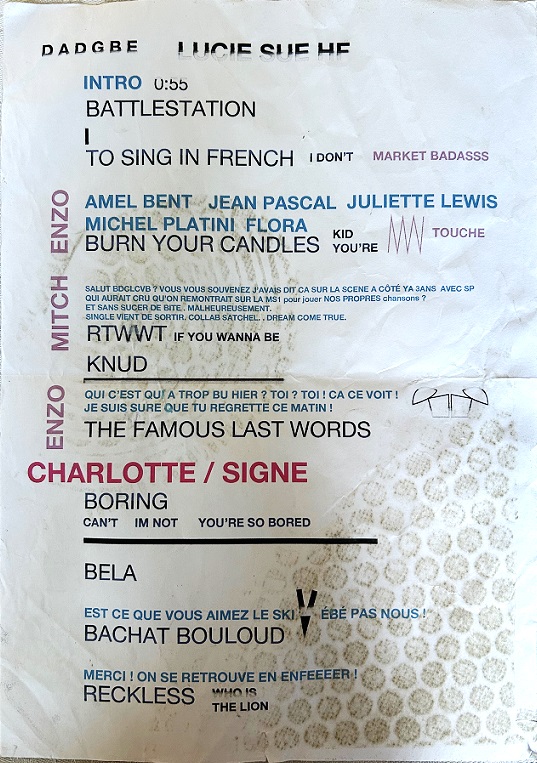 DADGBE LUCIE SUE HF
INTRO 0:55
BATTLESTATION
I
TO SING IN FRENCH I DON'T MARKET BADASSS
AMEL BENT JEAN PASCAL JULIETTE LEWIS
MICHEL PLATINI FLORA
BURN YOUR CANDLES KID YOU'RE TOUCHE
ENZO
MITCH
SALUT BDGLCVB ? VOUS VOUS SOUVENEZ J'AVAIS DIT CA SUR LA SCENE A CÔTÉ YA 3ANS AVEC SP
QUI AURAIT CRU QU'ON REMONTRAIT SUR LA MS1 pour jouer NOS PROPRES chansons ?
ET SANS SUCER DE BITE . MALHEUREUSEMENT.
SINGLE VIENT DE SORTIR. COLLAB SATCHEL. . DREAM COME TRUE.
RTWWT IF YOU WANNA BE
KNUD
ENZO
QUI C'EST QUI A TROP BU HIER ? TOI ? TOI ! CA CE VOIT !
JE SUIS SURE QUE TU REGRETTE CE MATIN !
THE FAMOUS LAST WORDS
CHARLOTTE / SIGNE
BORING
CAN'T IM NOT YOU'RE SO BORED
BELA
EST CE QUE VOUS AIMEZ LE SKI ÉBÉ PAS NOUS !
BACHAT BOULOUD
MERCI ! ON SE RETROUVE EN ENFEEEER !
RECKLESS WHO IS
THE LION